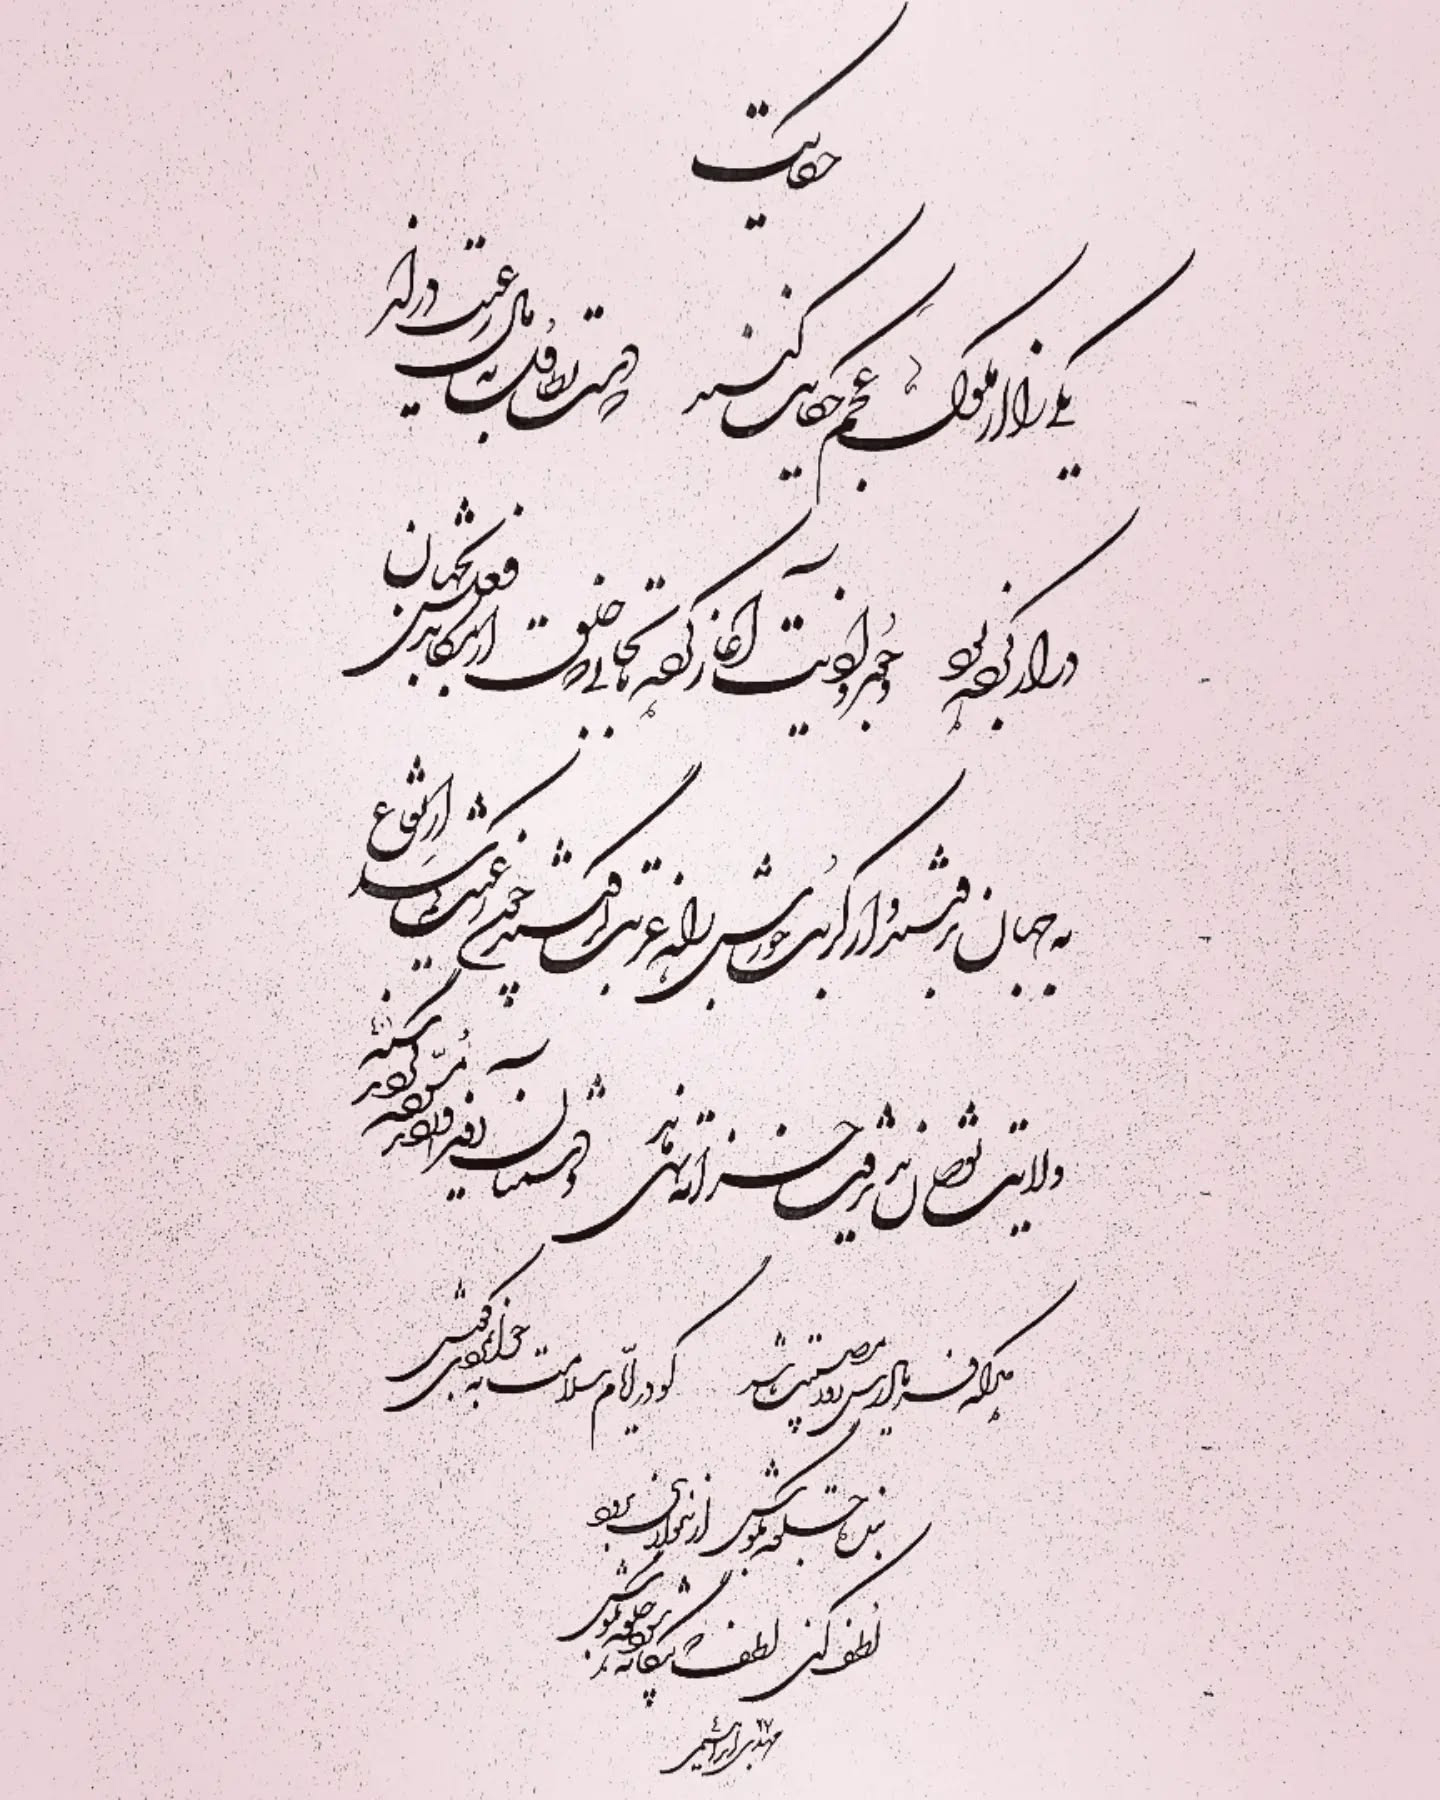 حکایت
یکی را از ملوک عجم حکایت کنند دست تطاول به مال رعیت دراز
دراز کرده بود و جور و اذیت آغاز کرده تا به جایی که خلق از مکاید فعلش به جهان
به جهان برفتند و از کربت جورش راه غربت گرفتند چون رعیت کم شد ارتفاع
ولایت نقصان پذیرفت خزانه تهی ماند و دشمنان زور آوردند
هرکه فریادرس روز مصیبت خواهد گو در ایام سلامت به جوانمردی کوش
بنده حلقه به گوش ار ننوازی برود
لطف کن لطف که بیگانه شود حلقه به گوش
مهدی ابراهیمی